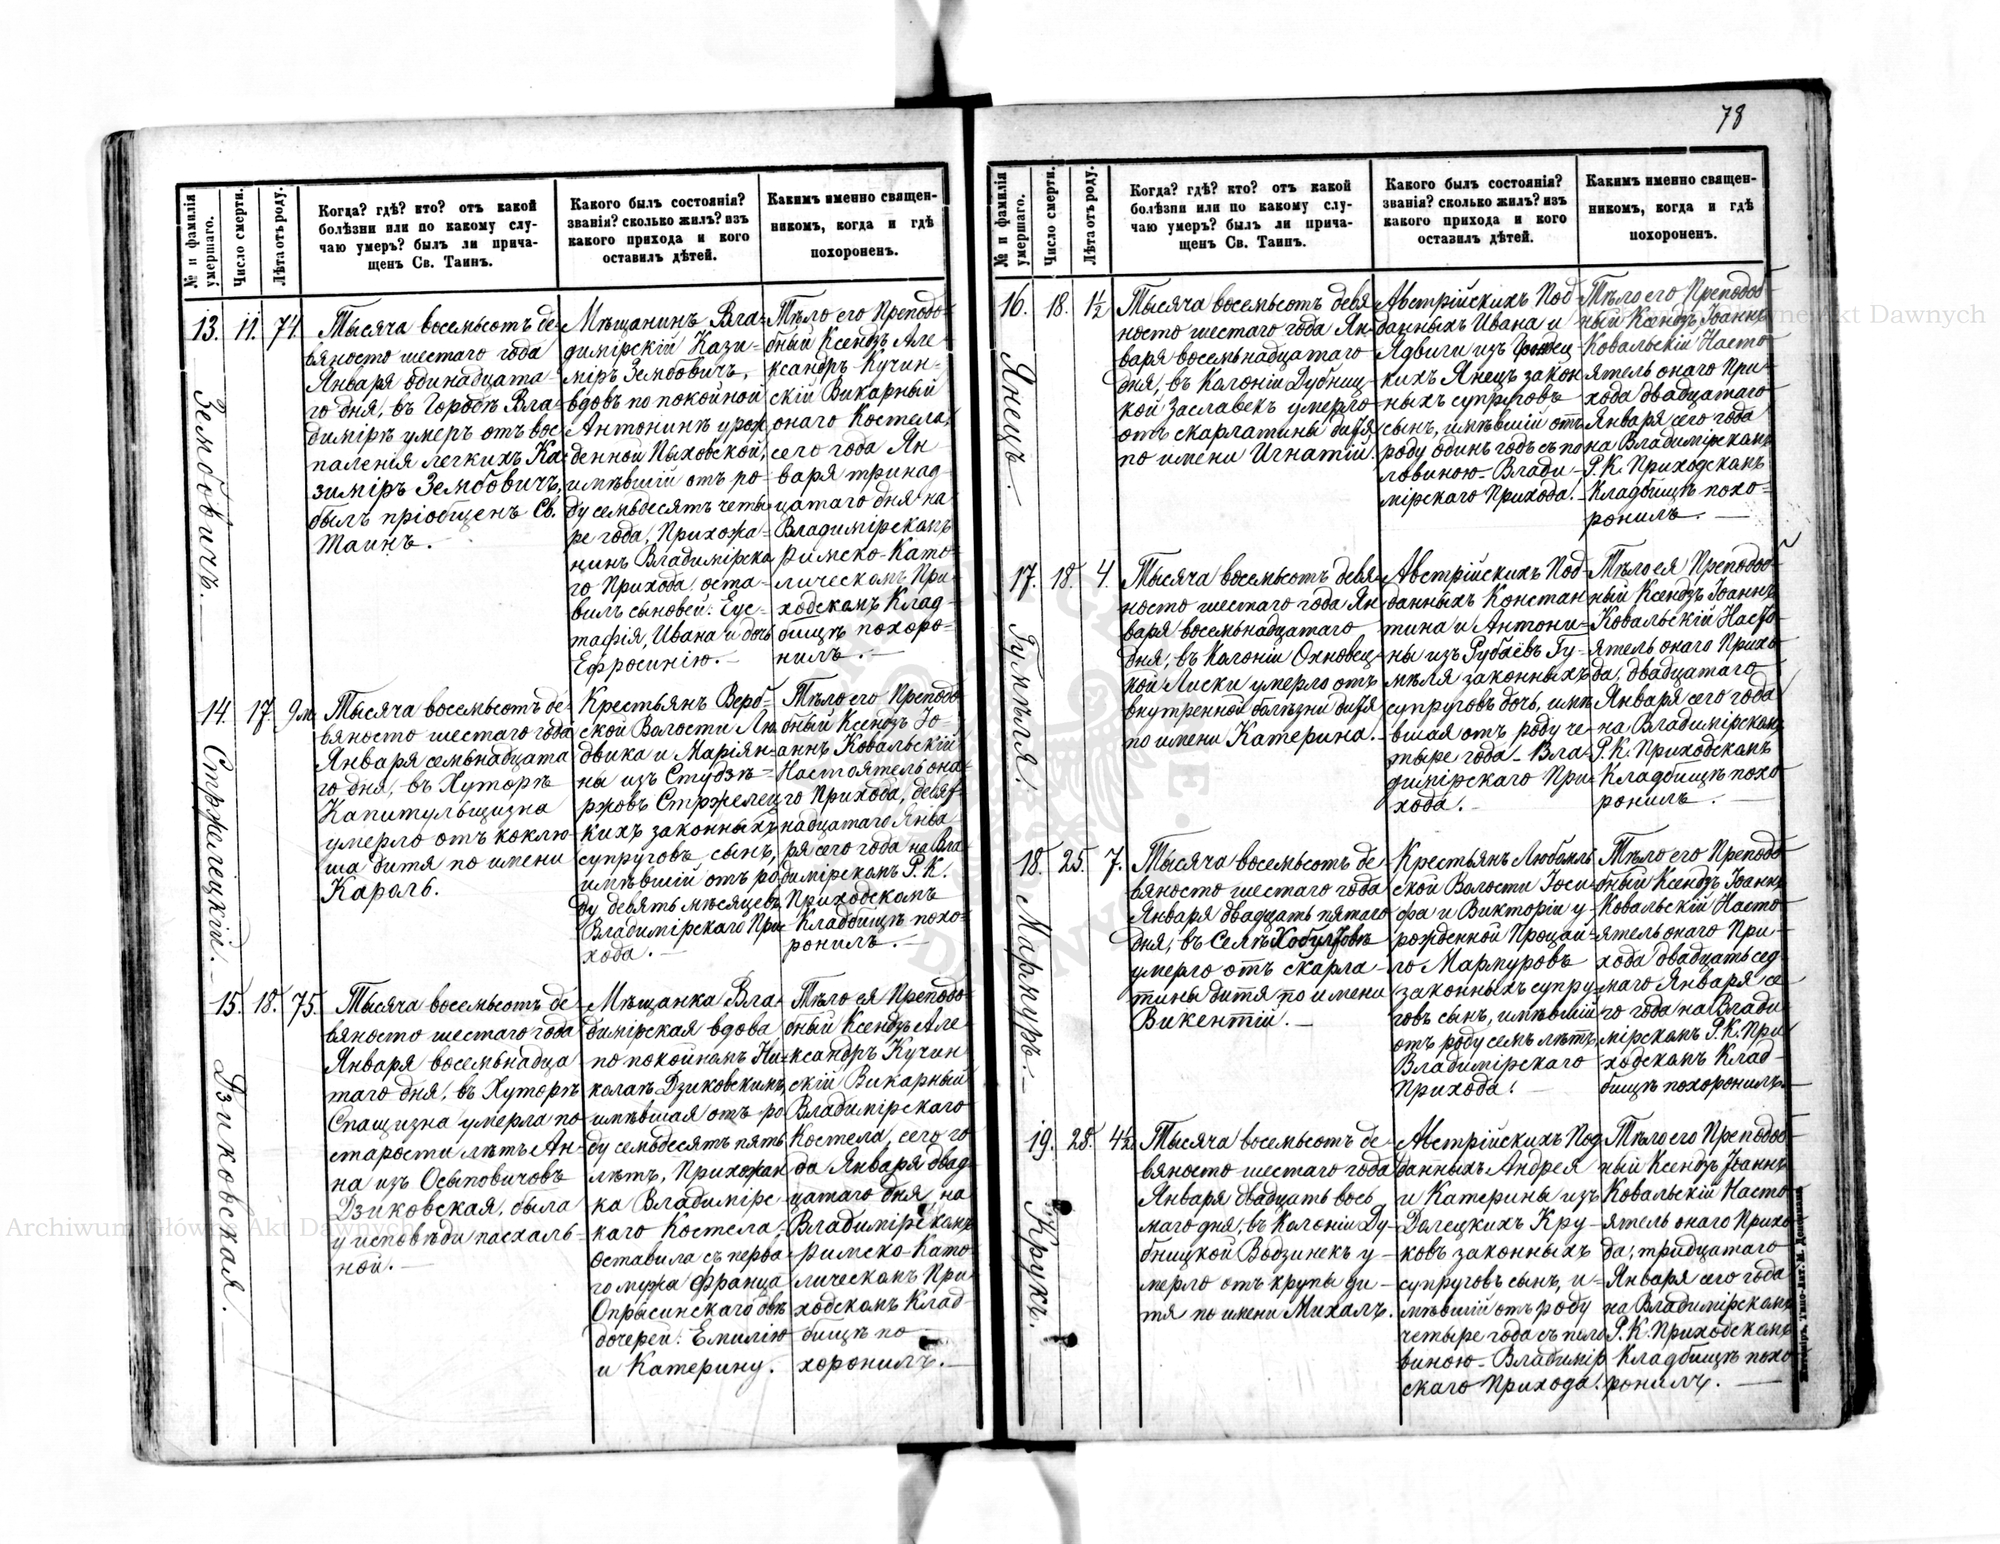 78
№ и фамилія умершаго.
Число смерти.
Лѣта отъ роду.
Когда? гдѣ? кто? отъ какой
болѣзни или по какому слу-
чаю умеръ? былъ ли прича-
щенъ Св. Таинъ.
Какого былъ состоянія?
званія? сколько жилъ? изъ
какого прихода и кого
оставилъ дѣтей.
Какимъ именно священ-
никомъ, когда и гдѣ
похороненъ.
13.
Зембовичъ.
11.
74
Тысяча восемьсотъ де-
вяносто шестаго года
Января одинадцата-
го дня, въ Городѣ Вла-
димірѣ умеръ отъ вос-
паленія легкихъ Ка-
зиміръ Зембовичъ,
былъ пріобщенъ Св.
Таинъ.
Мѣщанинъ Вла-
димірскій Кази-
міръ Зембовичъ,
вдовъ по покойной
Антонинѣ урож-
денной Пыховской,
имѣвшій отъ ро-
ду семьдесятъ четы-
ре года, Прихожа-
нинъ Владимірска
го Прихода, оста-
вилъ сыновей: Еус-
тафія, Ивана и дочь
Ефросинію.
Тѣло его Преподо-
бный Ксендзъ Але-
ксандръ Кучин-
скій Викарный
онаго Костела,
сего года Ян
варя тринад-
цатаго дня на
Владимірскомъ
Римско-Като-
лическомъ При-
ходскомъ Клад-
бищѣ похоро-
нилъ.
14.
Стржилецкій.
17.
9 м.
Тысяча восемьсотъ де-
вяносто шестаго года
Января семьнадцата
го дня, въ Хуторѣ
Капитульщизна
умерло отъ коклю-
ша дитя по имени
Кароль.
Крестьянъ Верб-
ской Волости Лю
двика и Маріян-
ны изъ Студзѣ-
ржовъ Стржелец
кихъ законныхъ
супруговъ сынъ,
имѣвшій отъ ро
ду девять мѣсяцевъ
Владимірскаго При-
хода.
Тѣло его Преподо
бный Ксендзъ Іо-
аннъ Ковальскій
Настоятель она-
го Прихода, девят-
надцатаго Янва
ря сего года на Вла
димірскомъ Р. К.
Приходскомъ
Кладбищѣ похо-
ронилъ.
15.
Дзиковская.
18.
75.
Тысяча восемьсотъ де-
вяносто шестаго года
Января восемьнадца
таго дня, въ Хуторѣ
Спащизна умерла по
старости лѣтъ Ан-
на изъ Осыповичовъ
Дзиковская, была
у исповѣди пасхаль-
ной.
Мѣщанка Вла-
димірская вдова
по покойномъ Ни-
колаѣ Дзиковскимъ,
имѣвшая отъ ро
ду семьдесятъ пять
лѣтъ, Прихожан
ка Владимірс
каго Костела,
оставила съ перва-
го мужа Франца
Опрысинскаго двѣ
дочерей: Емилію
и Катерину.
Тѣло ея Преподо-
бный Ксендзъ Але
ксандръ Кучин
скій Викарный
Владимірскаго
Костела, сего го
да Января двад-
цатаго дня на
Владимірскомъ
Римско-Като-
лическомъ При
ходскомъ Клад-
бищѣ по-
хоронилъ.
№ и фамилія умершаго.
Число смерти.
Лѣта отъ роду.
Когда? гдѣ? кто? отъ какой
болѣзни или по какому слу-
чаю умеръ? былъ ли прича-
щенъ Св. Таинъ.
Какого былъ состоянія?
званія? сколько жилъ? изъ
какого прихода и кого
оставилъ дѣтей.
Какимъ именно священ-
никомъ, когда и гдѣ
похороненъ.
16.
Янецъ.
18.
1½
Тысяча восемьсотъ девя
носто шестаго года Ян
варя восемьнадцатаго
дня, въ Колоніи Дубниц-
кой Заславекъ умерло
отъ скарлатины дитя
по имени Игнатій.
Австрійскихъ Под
данныхъ Ивана и
Ядвиги изъ
кихъ Янецъ закон
ныхъ супруговъ
сынъ, имѣвшій отъ
роду одинъ годъ съ по
ловиною Влади-
мірскаго Прихода.
Тѣло его Преподоб-
ный Ксендзъ Іоаннъ
Ковальскій Насто
ятель онаго При-
хода двадцатаго
Января сего года
на Владимірскомъ
Р. К. Приходскомъ
Кладбищѣ похо-
ронилъ.
17.
Гумѣля.
18.
4.
Тысяча восемьсотъ девя
носто шестаго года Ян
варя восемьнадцатаго
дня, въ Колоніи Охновец-
кой Лиски умерло отъ
внутренной болѣзни дитя
по имени Катерина.
Австрійскихъ Под-
данныхъ Констан
тина и Антони-
ны изъ Рубаёвъ Гу-
мѣля законныхъ
супруговъ дочь, имѣ
вшая отъ роду че-
тыре года Вла-
димірскаго При-
хода.
Тѣло ея Преподоб-
ный Ксендзъ Іоаннъ
Ковальскій Насто-
ятель онаго Прихо
да, двадцатаго
Января сего года
на Владимірскомъ
Р. К. Приходскомъ
Кладбищѣ похо
ронилъ.
18.
Мармуръ.
25.
7.
Тысяча восемьсотъ де-
вяносто шестаго года
Января двадцать пятаго
дня, въ Селѣ Хобултовѣ
умерло отъ скарла-
тины дитя по имени
Викентій.
Крестьянъ Любомль
ской Волости Іоси-
фа и Викторіи у-
рожденной Процай-
ло Мармуровъ
законныхъ супру-
говъ сынъ, имѣвшій
отъ роду семь лѣтъ,
Владимірскаго
Прихода.
Тѣло его Преподо
бный Ксендзъ Іоаннъ
Ковальскій Насто-
ятель онаго При-
хода двадцать сед-
маго Января се-
го года на Влади
мірскомъ Р. К. При
ходскомъ Клад-
бищѣ похоронилъ.
19.
Крукъ.
28.
4½
Тысяча восемьсотъ де-
вяносто шестаго года
Января двадцать вось
маго дня, въ Колоніи Ду-
бницкой Водзинекъ у-
мерло отъ крупы ди-
тя по имени Михалъ.
Австрійскихъ Под
данныхъ Андрея
и Катерины изъ
Долецкихъ Кру-
ковъ законныхъ
супруговъ сынъ, и-
мѣвшій отъ роду
четыре года съ поло
виною Владимір
скаго Прихода.
Тѣло его Преподоб-
ный Ксендзъ Іоаннъ
Ковальскій Насто
ятель онаго Прихо
да, тридцатаго
Января сего года
на Владимірскомъ
Р. К. Приходскомъ
Кладбищѣ похо
ронилъ.
Archiwum Główne Akt Dawnych